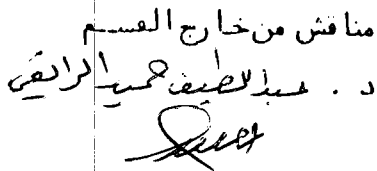 مناقش من خارج القسم
د. عبد اللطيف حميد الرائقي